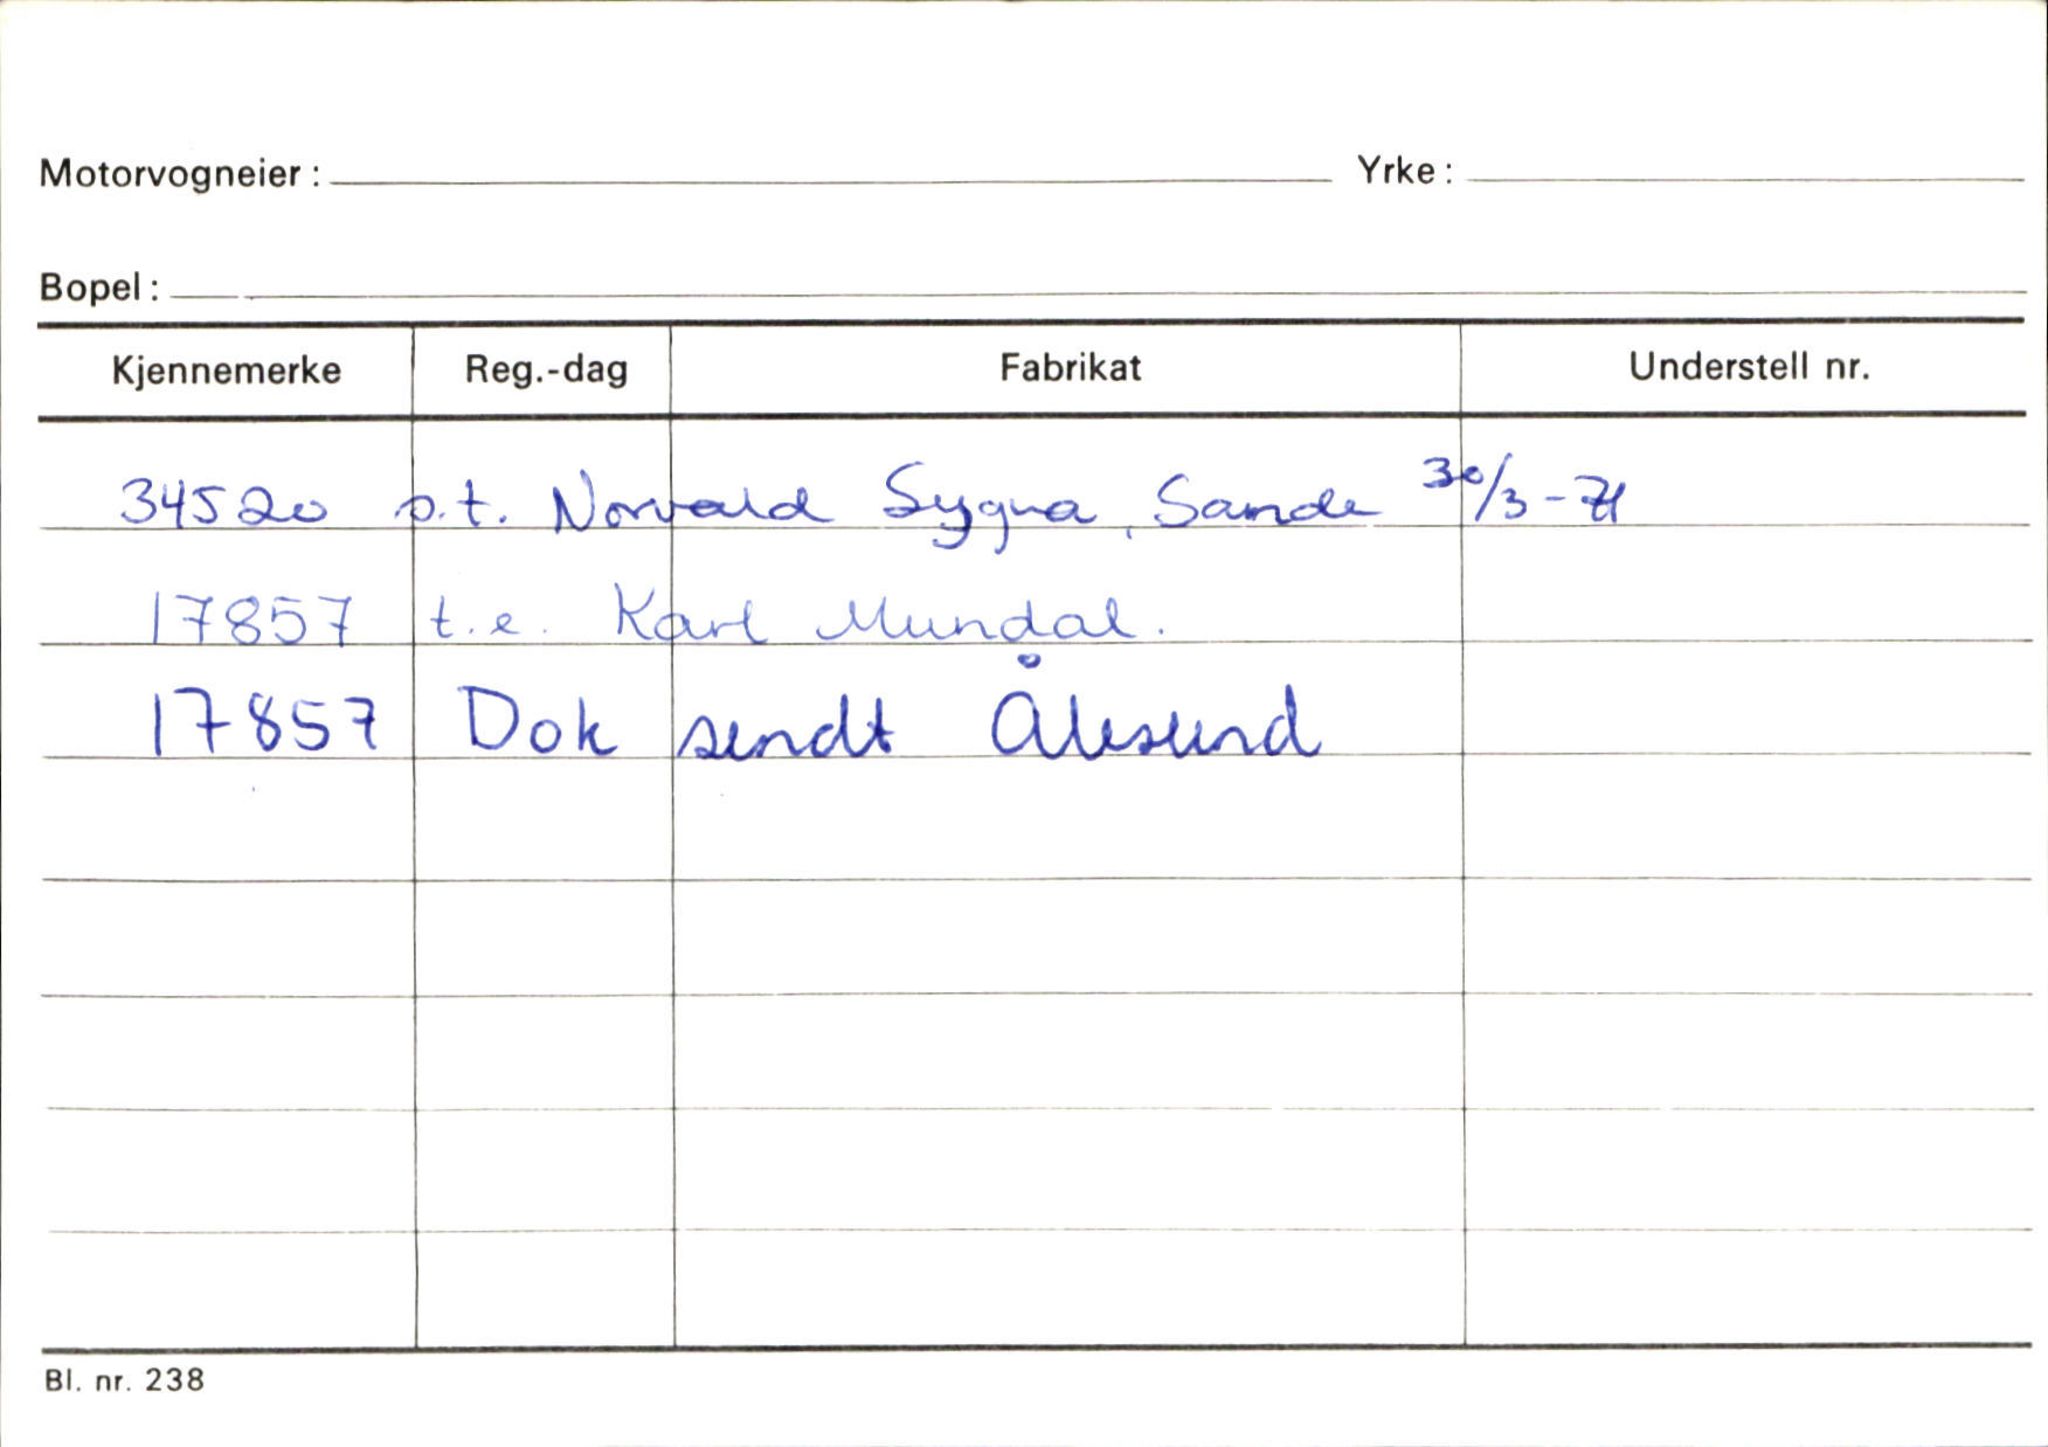 Motorvogneier: Yrke:
Bopel:
Kjennemerke Reg.-dag Fabrikat Understell nr.
34520 s.t. Norvald Sygna, Sande 30/3-71
17857 t.e. Karl Mundal.
17857 Dok sendt Ålesund
Bl. nr. 238